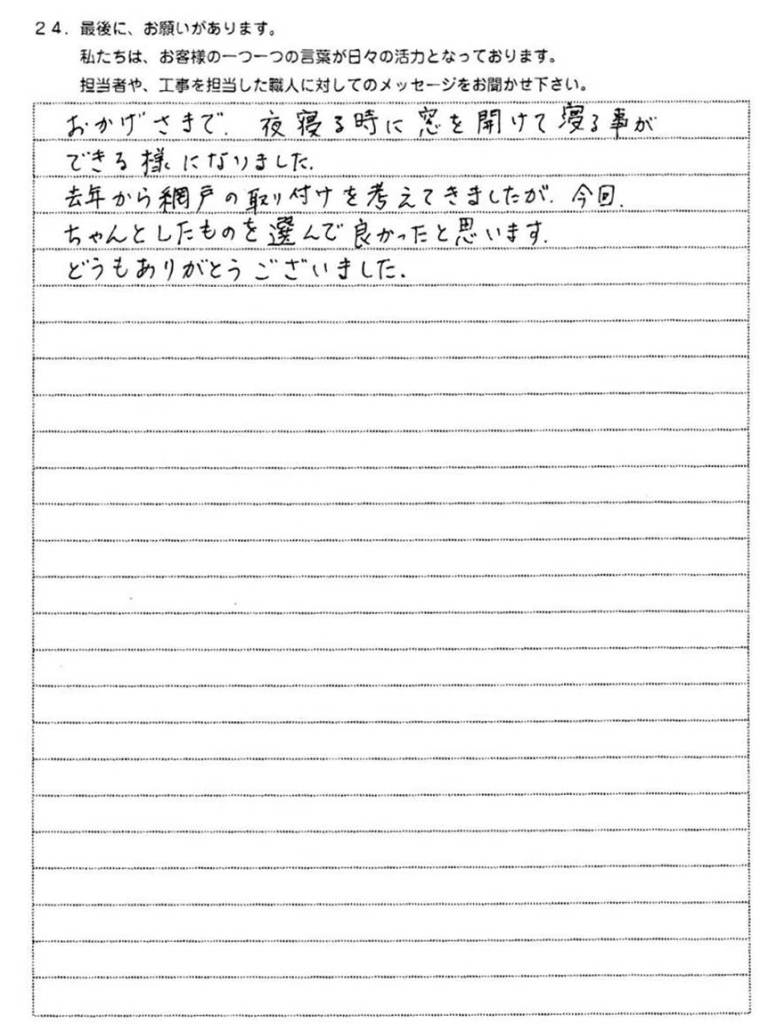 ２４．最後に、お願いがあります。
私たちは、お客様の一つ一つの言葉が日々の活力となっております。
担当者や、工事を担当した職人に対してのメッセージをお聞かせ下さい。
おかげさまで、夜寝る時に窓を開けて寝る事が
できる様になりました。
去年から網戸の取り付けを考えてきましたが、今回、
ちゃんとしたものを選んで良かったと思います。
どうもありがとうございました。